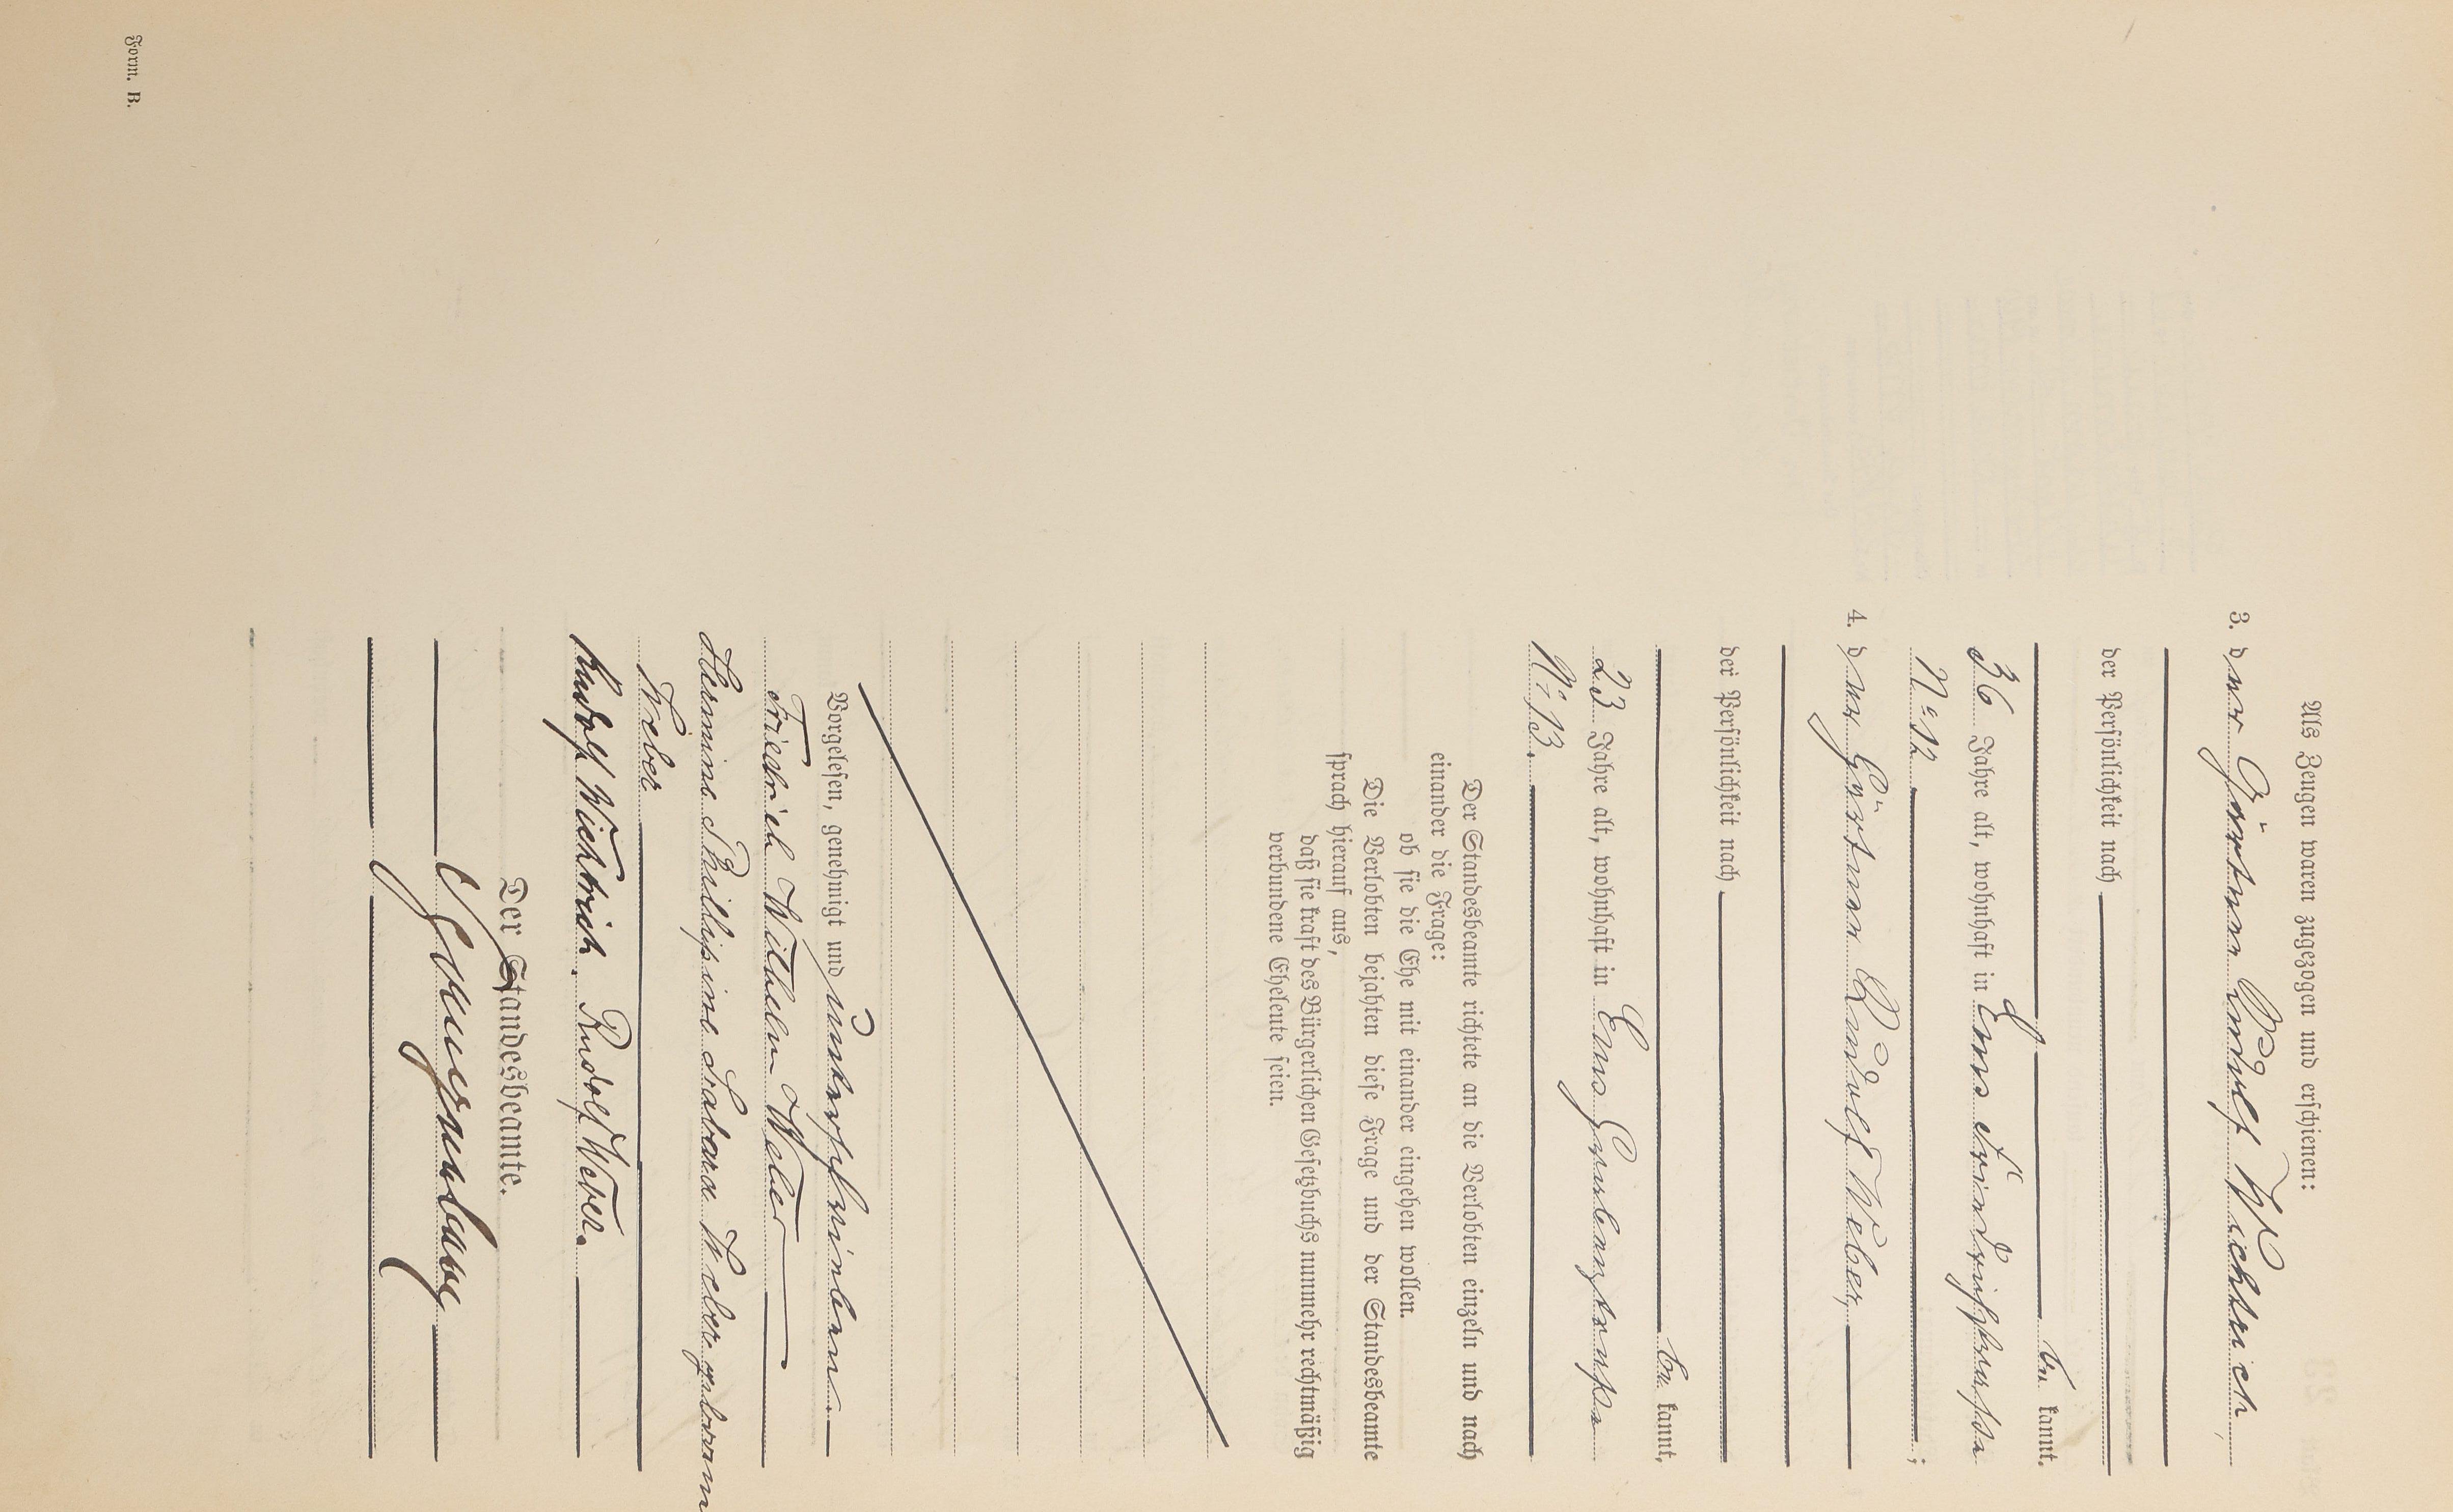 Als Zeugen waren zugezogen und erschienen:
3. der Gärtner Rudolf Wichtrich
der Persönlichkeit nach
be kannt,
36 Jahre alt, wohnhaft in Ems
No 12 ;
4. der Gärtner Rudolf Weber,
der Persönlichkeit nach
be kannt,
23 Jahre alt, wohnhaft in Ems
No 13.
Der Standesbeamte richtete an die Verlobten einzeln und nach
einander die Frage:
ob sie die Ehe mit einander eingehen wollen.
Die Verlobten bejahten diese Frage und der Standesbeamte
sprach hierauf aus,
daß sie kraft des Bürgerlichen Gesetzbuchs nunmehr rechtmäßig
verbundene Eheleute seien.
Vorgelesen, genehmigt und unterschrieben.
Friedrich Wilhelm Weber
Hermine Phillipine Barbara Weber geborene
Weber
Rudolf Wichtrich. Rudolf Weber.
Der Standesbeamte.
Form. B.